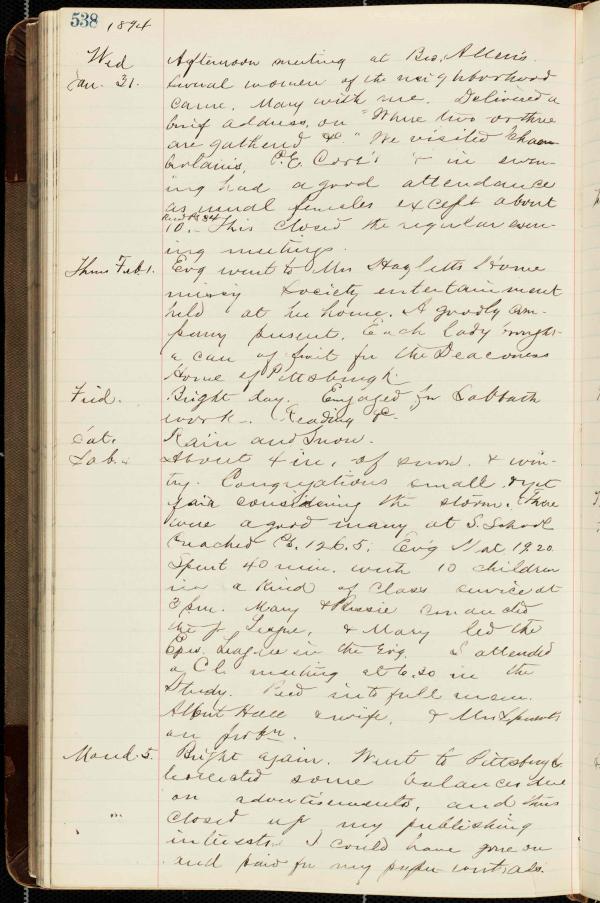 538 1894
Wed Afternoon meeting at Bro. Allen's.
Jan. 31. Several women of the neighborhood
came. Mary with me. Delivered a
brief address, on "Where two or three
are gathered &c." We visited Cham-
berlains, C.E. Cort's & in even-
ing had a good attendance
as usual females except about
10. This closed the regular even-
ing meetings.
Thurs Feb. 1. Evg went to Mrs Hazletts Home
missy Society entertainment
held at her home. A goodly com-
pany present. Each lady brought
a can of fruit for the Deaconess
Home of Pittsburgh.
Frid. Bright day. Engaged for Sabbath
work. Reading &c.
Sat. Rain and Snow.
Sab. 4 About 4 in. of snow. & win-
try. Congregations small & yet
fair considering the storm. There
were a good many at S. School
Preached Ps. 126.5; Ev'g at 19.20
Spent 40 min. with 10 children
in a kind of class service at
3 p.m. Mary & conducted
the Jr League, & Mary led the
Epw. League in the Evg. I attended
a Cl. meeting at 6.30 in the
Study. Recd into full mem.
Albert Hall & wife, & Mrs
on prob'n.
Mond. 5. Bright again. Went to Pittsburgh
& collected some balances due
on advertisements, and thus
closed up my publishing
interests. I could have gone on
and paid for my paper contracts.